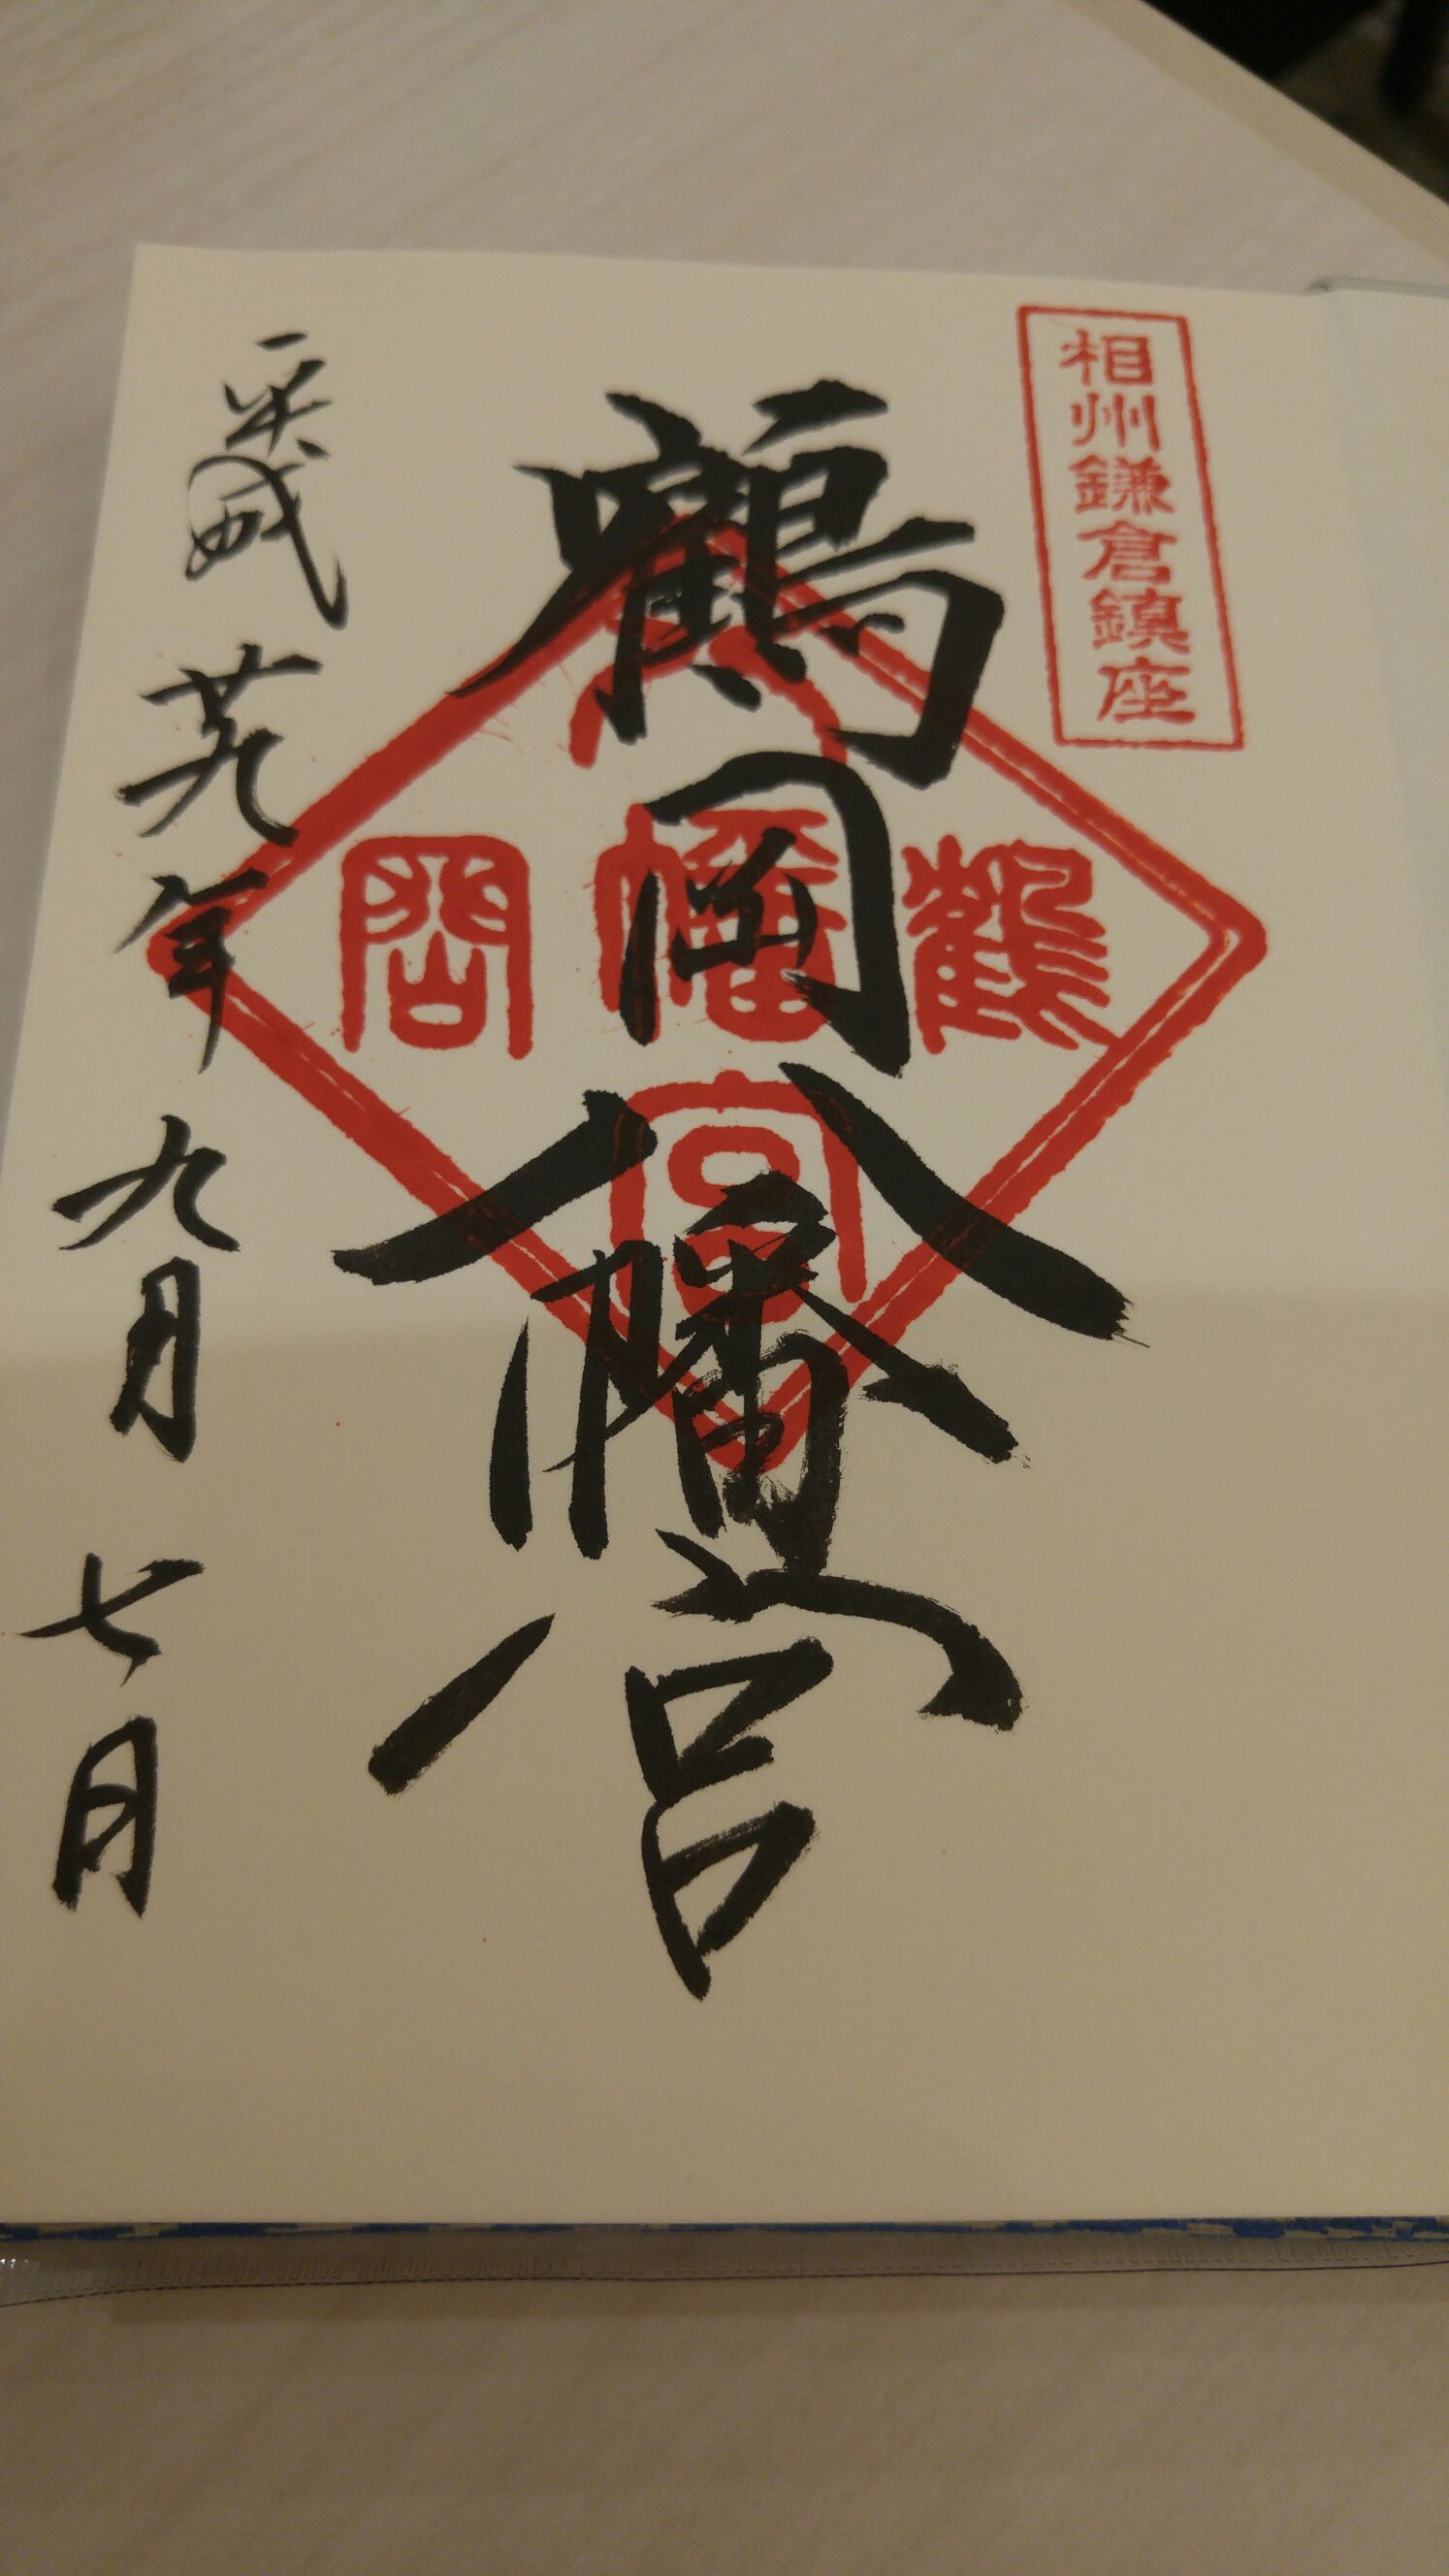 相州鎌倉鎮座
鶴岡八幡宮
鶴
八幡宮
岡
平成廿九年九月七日